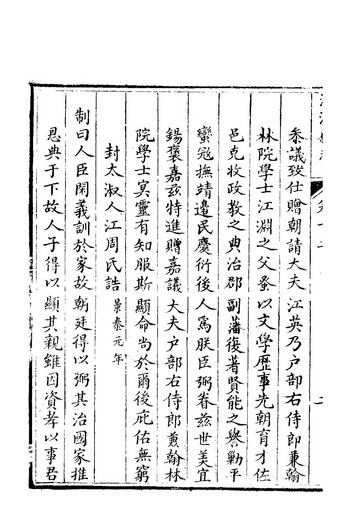 叅議致仕贈朝請大夫江英乃户部右侍郎兼翰
林院學士江淵之父蚤以文學歷事先朝育才佐
邑克收政教之典治郡副藩復著賢能之譽勦平
蠻冦撫靖邉民慶衍後人爲朕臣弼眷兹世美宜
錫褒嘉兹特進贈嘉議大夫户部右侍郎兼翰林
院學士冥靈有知服斯顯命尚於爾後庇佑無窮
封太淑人江周氏誥景泰元年
制曰人臣閑義訓於家故朝廷得以弼其治國家推
恩典于下故人子得以顯其親雖因資孝以事君